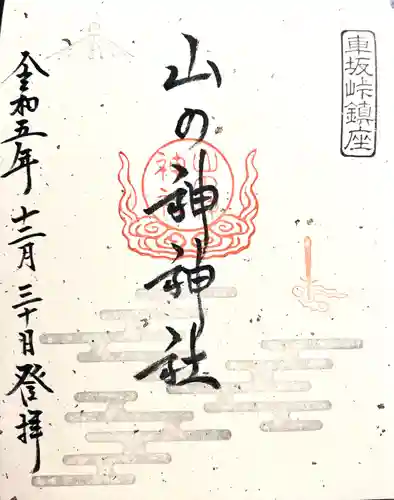 車坂峠鎮座
山の神神社
令和五年 十二月 三十日 登拝